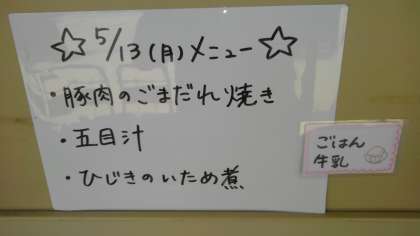 ☆5/13(月)メニュー☆
・豚肉のごまだれ焼き
・五目汁
・ひじきのいため煮
ごはん
牛乳